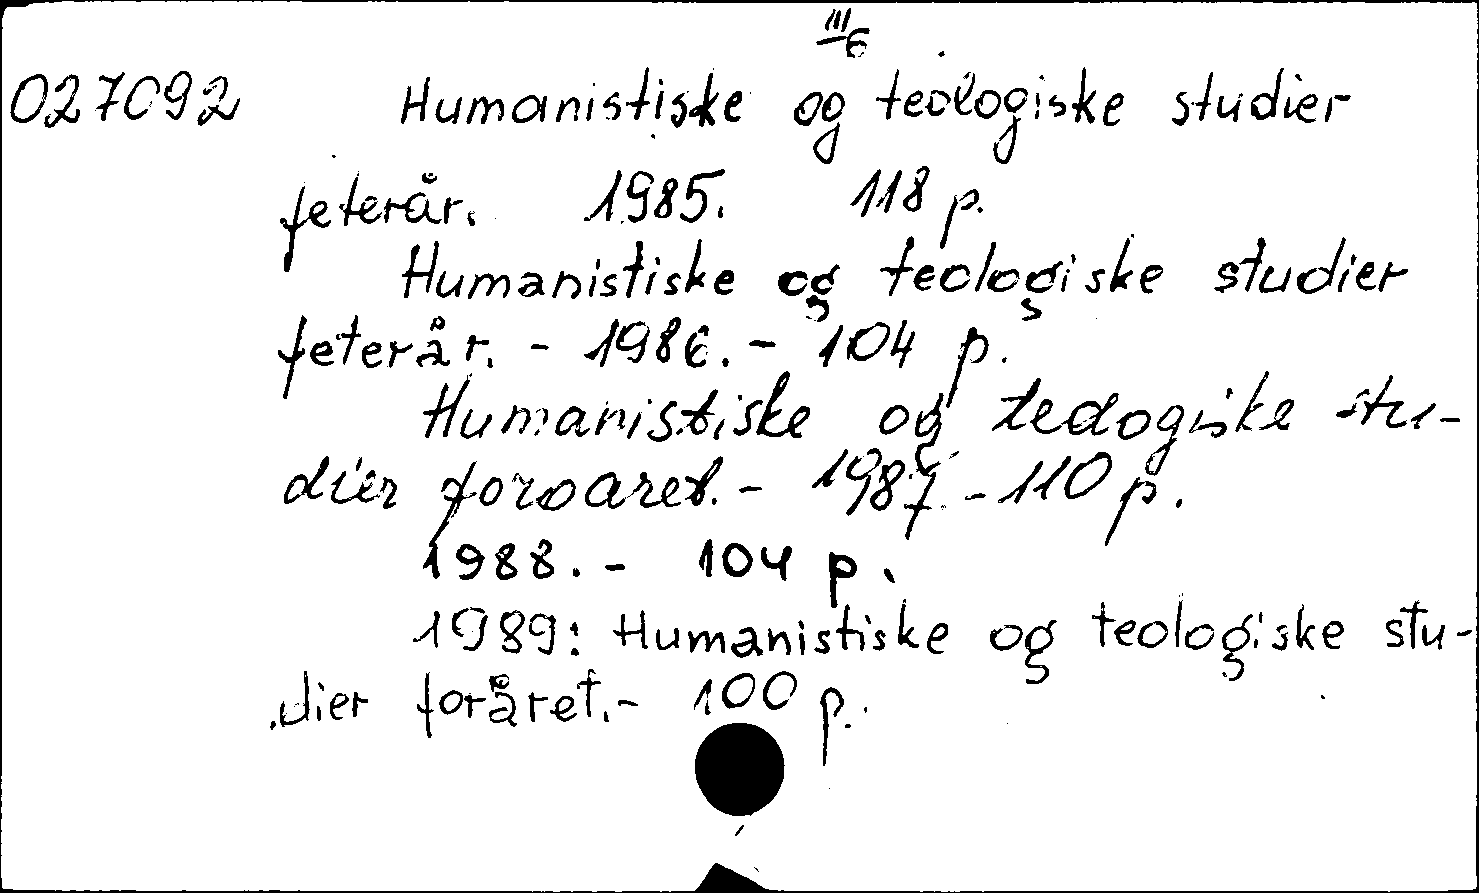 III/6
027092 Humanistiske og teologiske studier
feterår. 1985. 118 p.
Humanistiske og teologiske studier
feterår. - 1986. - 104 p.
Humanistiske og teologiske stu-
dier foroaret. - 1987. - 110 p.
1988. - 104 p.
1989: Humanistiske og teologiske stu-
dier foråret. - 100 p.